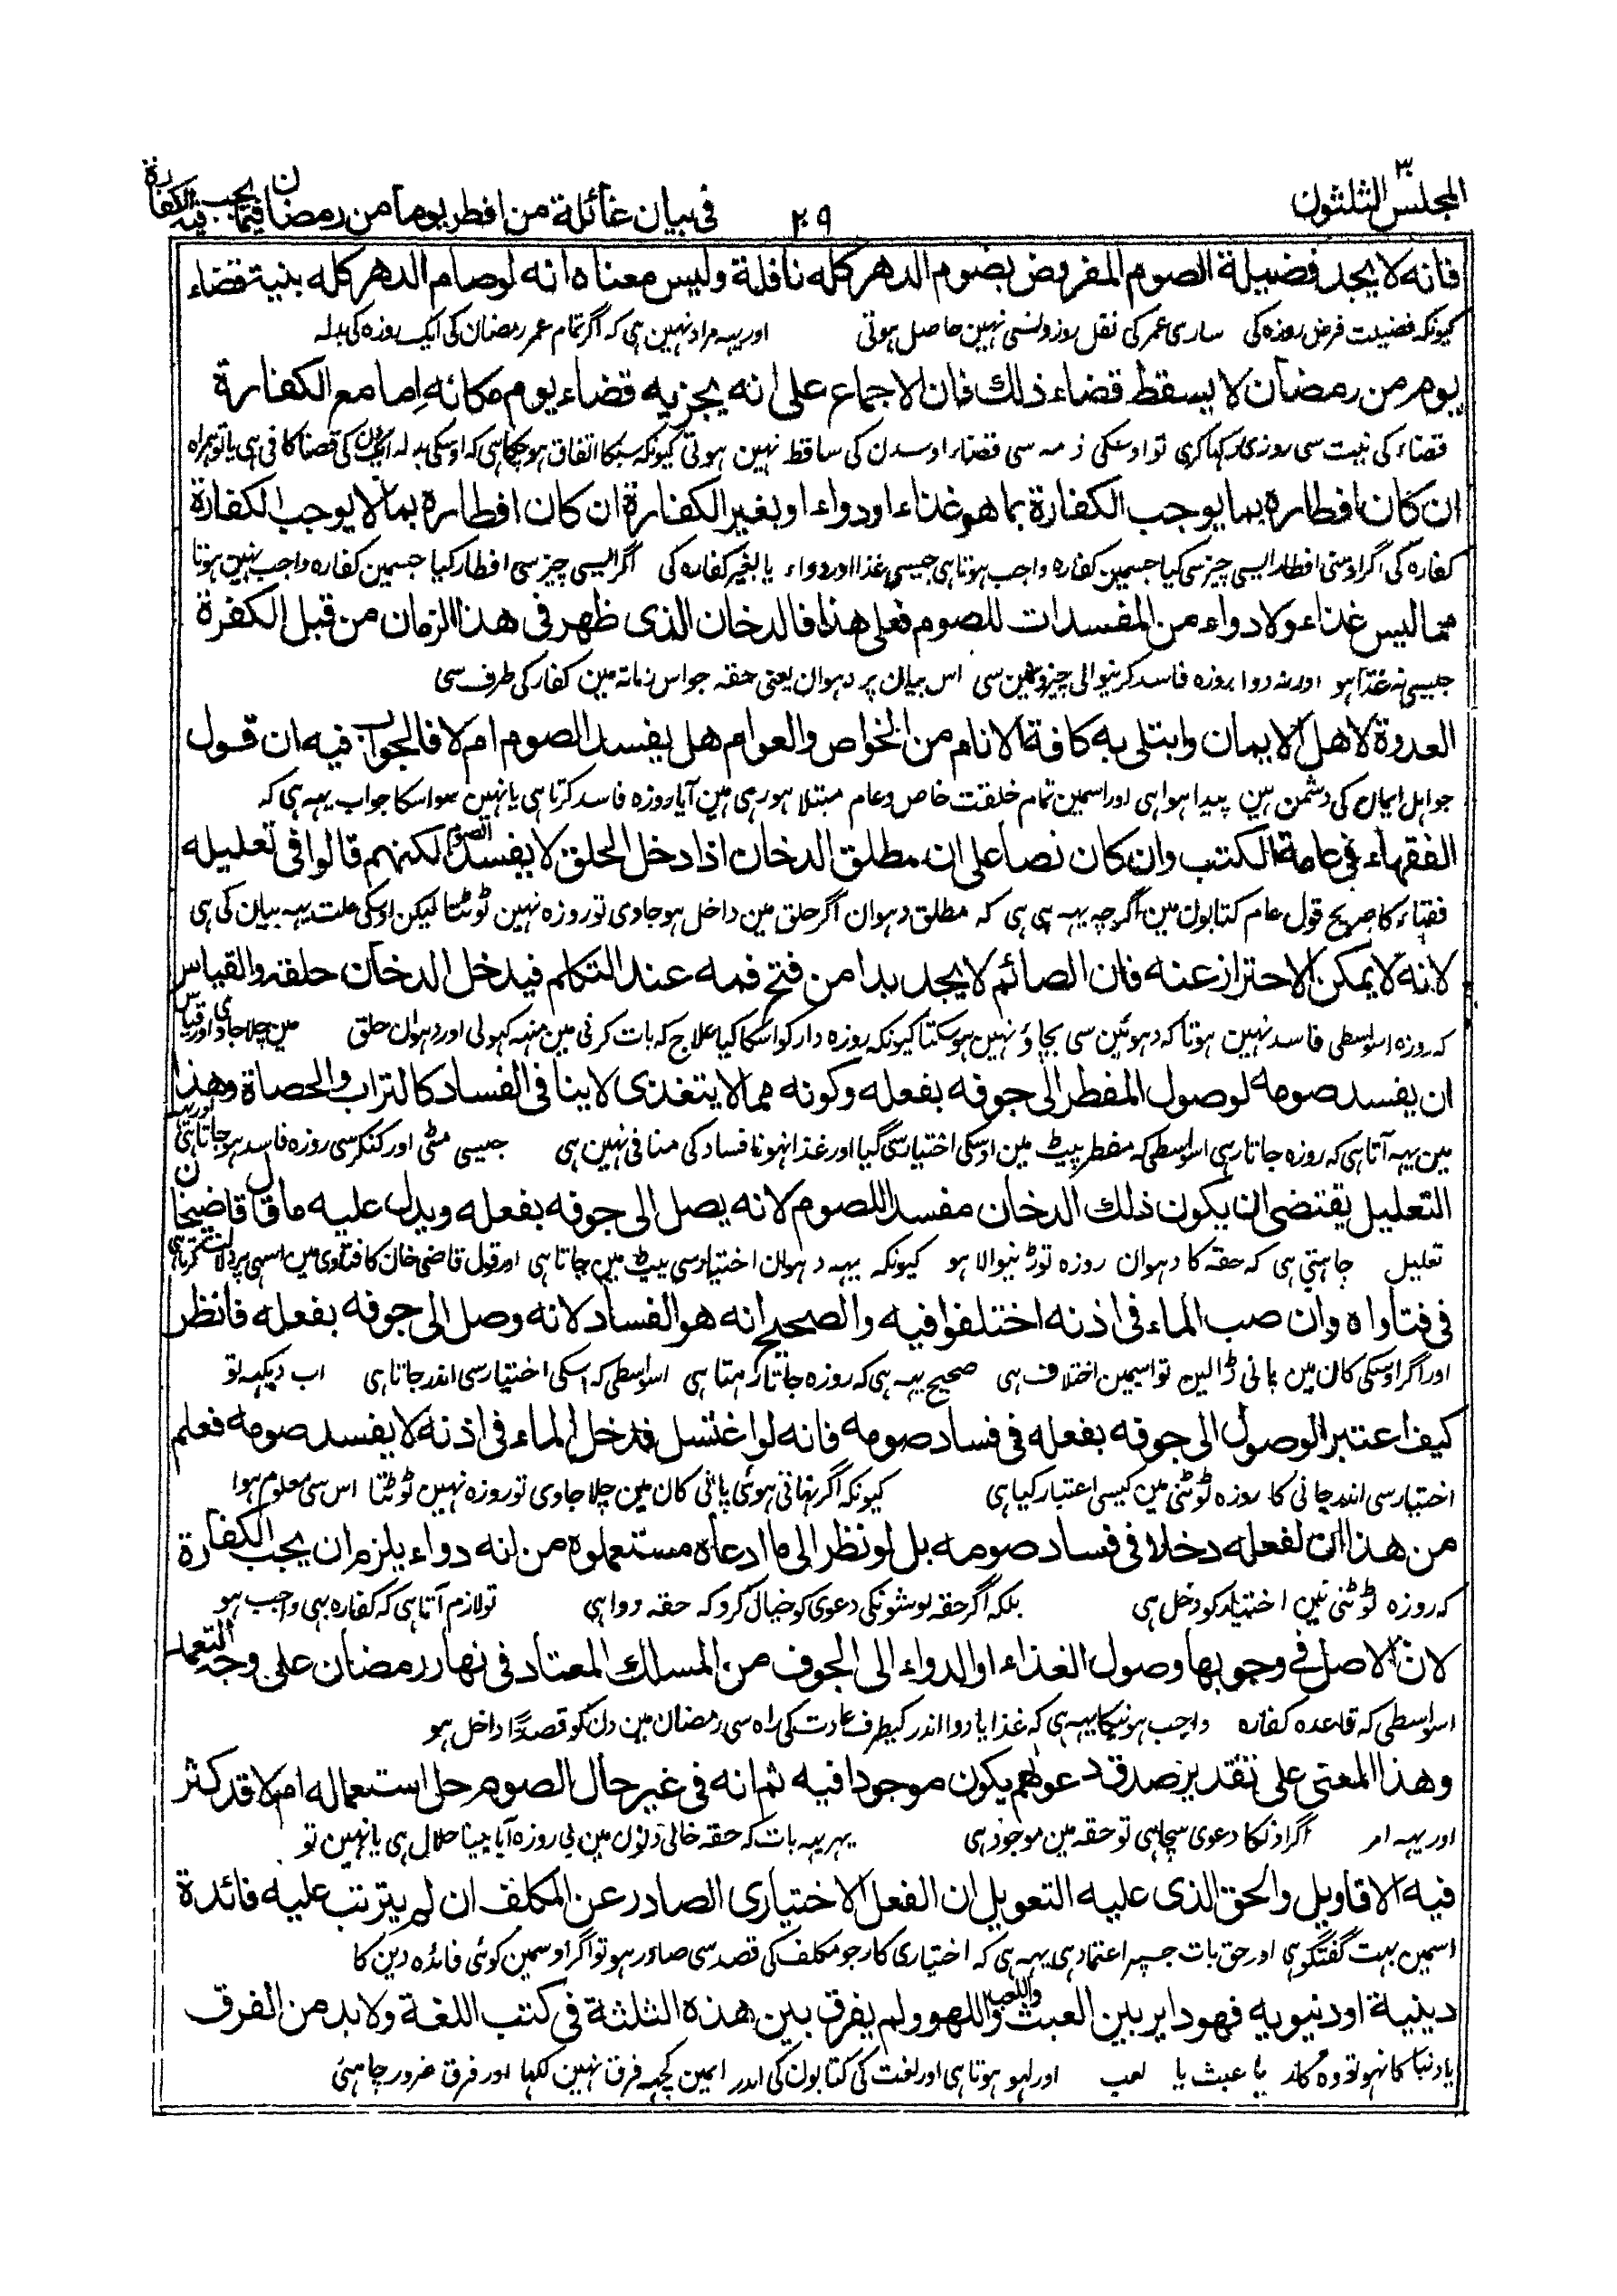 المجلس الثلثون
٢٠٩
فى بيان غائلة من افطر يوما من رمضان فيما يجب فيه الكفارة
فانه لا يجد فضيلة الصوم المفروض بصوم الدهر كله نافلة وليس معناه انه لو صام الدهر كله بنية قضاء
کیونکہ فضیلت فرض روزہ کی ساری عمر کی نفل روزونسی نہین حاصل ہوتی اور یہہ مراد نہین ہی کہ اگر تمام عمر رمضان کی ایک روزہ کی بدلہ
يوم من رمضان لا يسقط قضاء ذلك فان الاجماع على انه يجزيه قضاء يوم مكانه اما مع الكفارة
قضاء کی نیت سی روزی رکہا کری تو اوسکی ذمہ سی قضاء اوسدن کی ساقط نہین ہوتی کیونکہ سبکا اتفاق ہوچکا ہی کہ اوسکی بدلہ ایکدن کی قضا کافی ہی یا تو ہمراہ
ان كان افطاره بما يوجب الكفارة بما هو غذاء او دواء او بغير الكفارة ان كان افطاره بما لا يوجب الكفارة
کفارہ کی اگر اوسنی افطار ایسی چیز سی کیا جسمین کفارہ واجب ہوتا ہی جیسی غذا اور دواء یا بغیر کفارہ کی اگر ایسی چیز سی افطار کیا جسمین کفارہ واجب نہین ہوتا
مما ليس غذاء ولا دواء من المفسدات للصوم فعلى هذا فالدخان الذى ظهر فى هذا الزمان من قبل الكفرة
جیسی نہ غذا ہو اور نہ دوا روزہ فاسد کرنیوالی چیزونمین سی اس بیان پر دہوان یعنی حقہ جو اس زمانہ مین کفار کی طرف سی
العدوة لاهل الايمان وابتلى به كافة الانام من الخواص والعوام هل يفسد الصوم ام لا فالجواب فيه ان قول
جو اہل ایمان کی دشمن ہین پیدا ہوا ہی اور اسمین تمام خلقت خاص و عام مبتلا ہو رہی ہین آیا روزہ فاسد کرتا ہی یا نہین سو اسکا جواب یہہ ہی کہ
الفقهاء فى عامة الكتب وان كان نصا على ان مطلق الدخان اذا دخل الحلق لا يفسد الصوم لكنهم قالوا فى تعليله
فقہاء کا صریح قول عام کتابون مین اگرچہ یہہ ہی ہی کہ مطلق دہوان اگر حلق مین داخل ہو جاوی تو روزہ نہین ٹوٹتا لیکن اوسکی علت یہہ بیان کی ہی
لانه لا يمكن الاحتراز عنه فان الصائم لا يجد بدا من فتح فمه عند التكلم فيدخل الدخان حلقه والقياس
کہ روزہ اسواسطی فاسد نہین ہوتا کہ دہوئین سی بچاؤ نہین ہوسکتا کیونکہ روزہ دار کو اسکا کیا علاج کہ بات کرنی مین منہہ کہولی اور دہوان حلق مین چلا جاوی اور قیاس
ان يفسد صومه لوصول المفطر الى جوفه بفعله وكونه مما لا يتغذى لا ينافى الفساد كالتراب والحصاة وهذا
مین یہہ آتا ہی کہ روزہ جاتا رہی اسواسطی کہ مفطر پیٹ مین اوسکی اختیار سی گیا اور غذا نہونا فساد کی منافی نہین ہی جیسی مٹی اور کنکر سی روزہ فاسد ہو جاتا ہی اور یہہ
التعليل يقتضى ان يكون ذلك الدخان مفسدا للصوم لانه يصل الى جوفه بفعله ويدل عليه ما قال قاضيخان
تعلیل چاہتی ہی کہ حقہ کا دہوان روزہ توڑنیوالا ہو کیونکہ یہہ دہوان اختیار سی پیٹ مین جاتا ہی اور قول قاضی خان کا فتاوی مین اسہی پر دلالت کرتا ہی
فى فتاواه وان صب الماء فى اذنه اختلفوا فيه والصحيح انه هو الفساد لانه وصل الى جوفه بفعله فانظر
اور اگر اوسکی کان مین پانی ڈالین تو اسمین اختلاف ہی صحیح یہہ ہی کہ روزہ جاتا رہتا ہی اسواسطی کہ اسکی اختیار سی اندر جاتا ہی اب دیکہہ تو
كيف اعتبر الوصول الى جوفه بفعله فى فساد صومه فانه لو اغتسل فدخل الماء فى اذنه لا يفسد صومه فعلم
اختیار سی اندر جانی کا روزہ ٹوٹنی مین کیسی اعتبار کیا ہی کیونکہ اگر نہاتی ہوئی پانی کان مین چلا جاوی تو روزہ نہین ٹوٹتا اس سی معلوم ہوا
من هذا ان لفعله دخلا فى فساد صومه بل لو نظر الى ما ادعاه مستعملوه من انه دواء يلزم ان يجب الكفارة
کہ روزہ ٹوٹنی مین اختیار کو دخل ہی بلکہ اگر حقہ نوشونکی دعوی کو خیال کرو کہ حقہ دوا ہی تو لازم آتا ہی کہ کفارہ بہی واجب ہو
لان الاصل فى وجوبها وصول الغذاء او الدواء الى الجوف من المسلك المعتاد فى نهار رمضان على وجه التعمد
اسواسطی کہ قاعدہ کفارہ واجب ہونیکا یہہ ہی کہ غذا یا دوا اندر کیطرف عادت کی راہ سی رمضان مین دن کو قصدًا داخل ہو
وهذا المعنى على تقدير صدق دعوٰهم يكون موجودا فيه ثم انه فى غير حال الصوم حل استعماله ام لا قد كثر
اور یہہ امر اگر اونکا دعوی سچا ہی تو حقہ مین موجود ہی پہر یہہ بات کہ حقہ خالی دنون مین بی روزہ آیا پینا حلال ہی یا نہین تو
فيه الاقاويل والحق الذى عليه التعويل ان الفعل الاختيارى الصادر عن المكلف ان لم يترتب عليه فائدة
اسمین بہت گفتگو ہی اور حق بات جسپر اعتماد ہی یہہ ہی کہ اختیاری کار جو مکلف کی قصد سی صادر ہو تو اگر اوسمین کوئی فائدہ دین کا
دينية او دنيويه فهو داير بين العبث واللعب واللهو ولم يفرق بين هذه الثلثة فى كتب اللغة ولابد من الفرق
یا دنیا کا نہو تو وہ کار یا عبث یا لعب اور لہو ہوتا ہی اور لغت کی کتابون کی اندر اسمین کچہہ فرق نہین لکہا اور فرق ضرور چاہئی